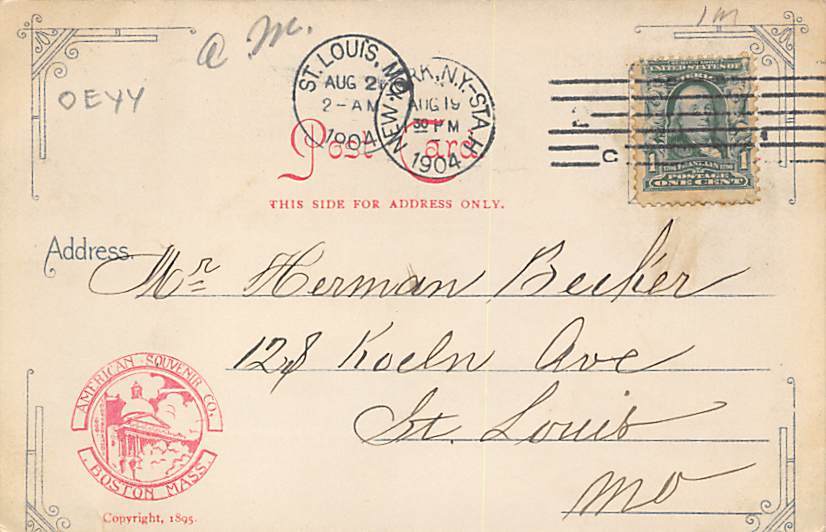 a.m.
1m
OEYY
ST. LOUIS, MO
AUG 2
2-AM
1904
NEW YORK, N.Y-STA.H.
AUG 19
30 PM
1904
C
UNITED STATES OF
1 1
POSTAGE
ONE CENT
Post Card
THIS SIDE FOR ADDRESS ONLY.
Address.
Mr Herman Becker
128 Koeln Ave
St. Louis
Mo
AMERICAN SOUVENIR CO.
BOSTON MASS.
Copyright, 1895.